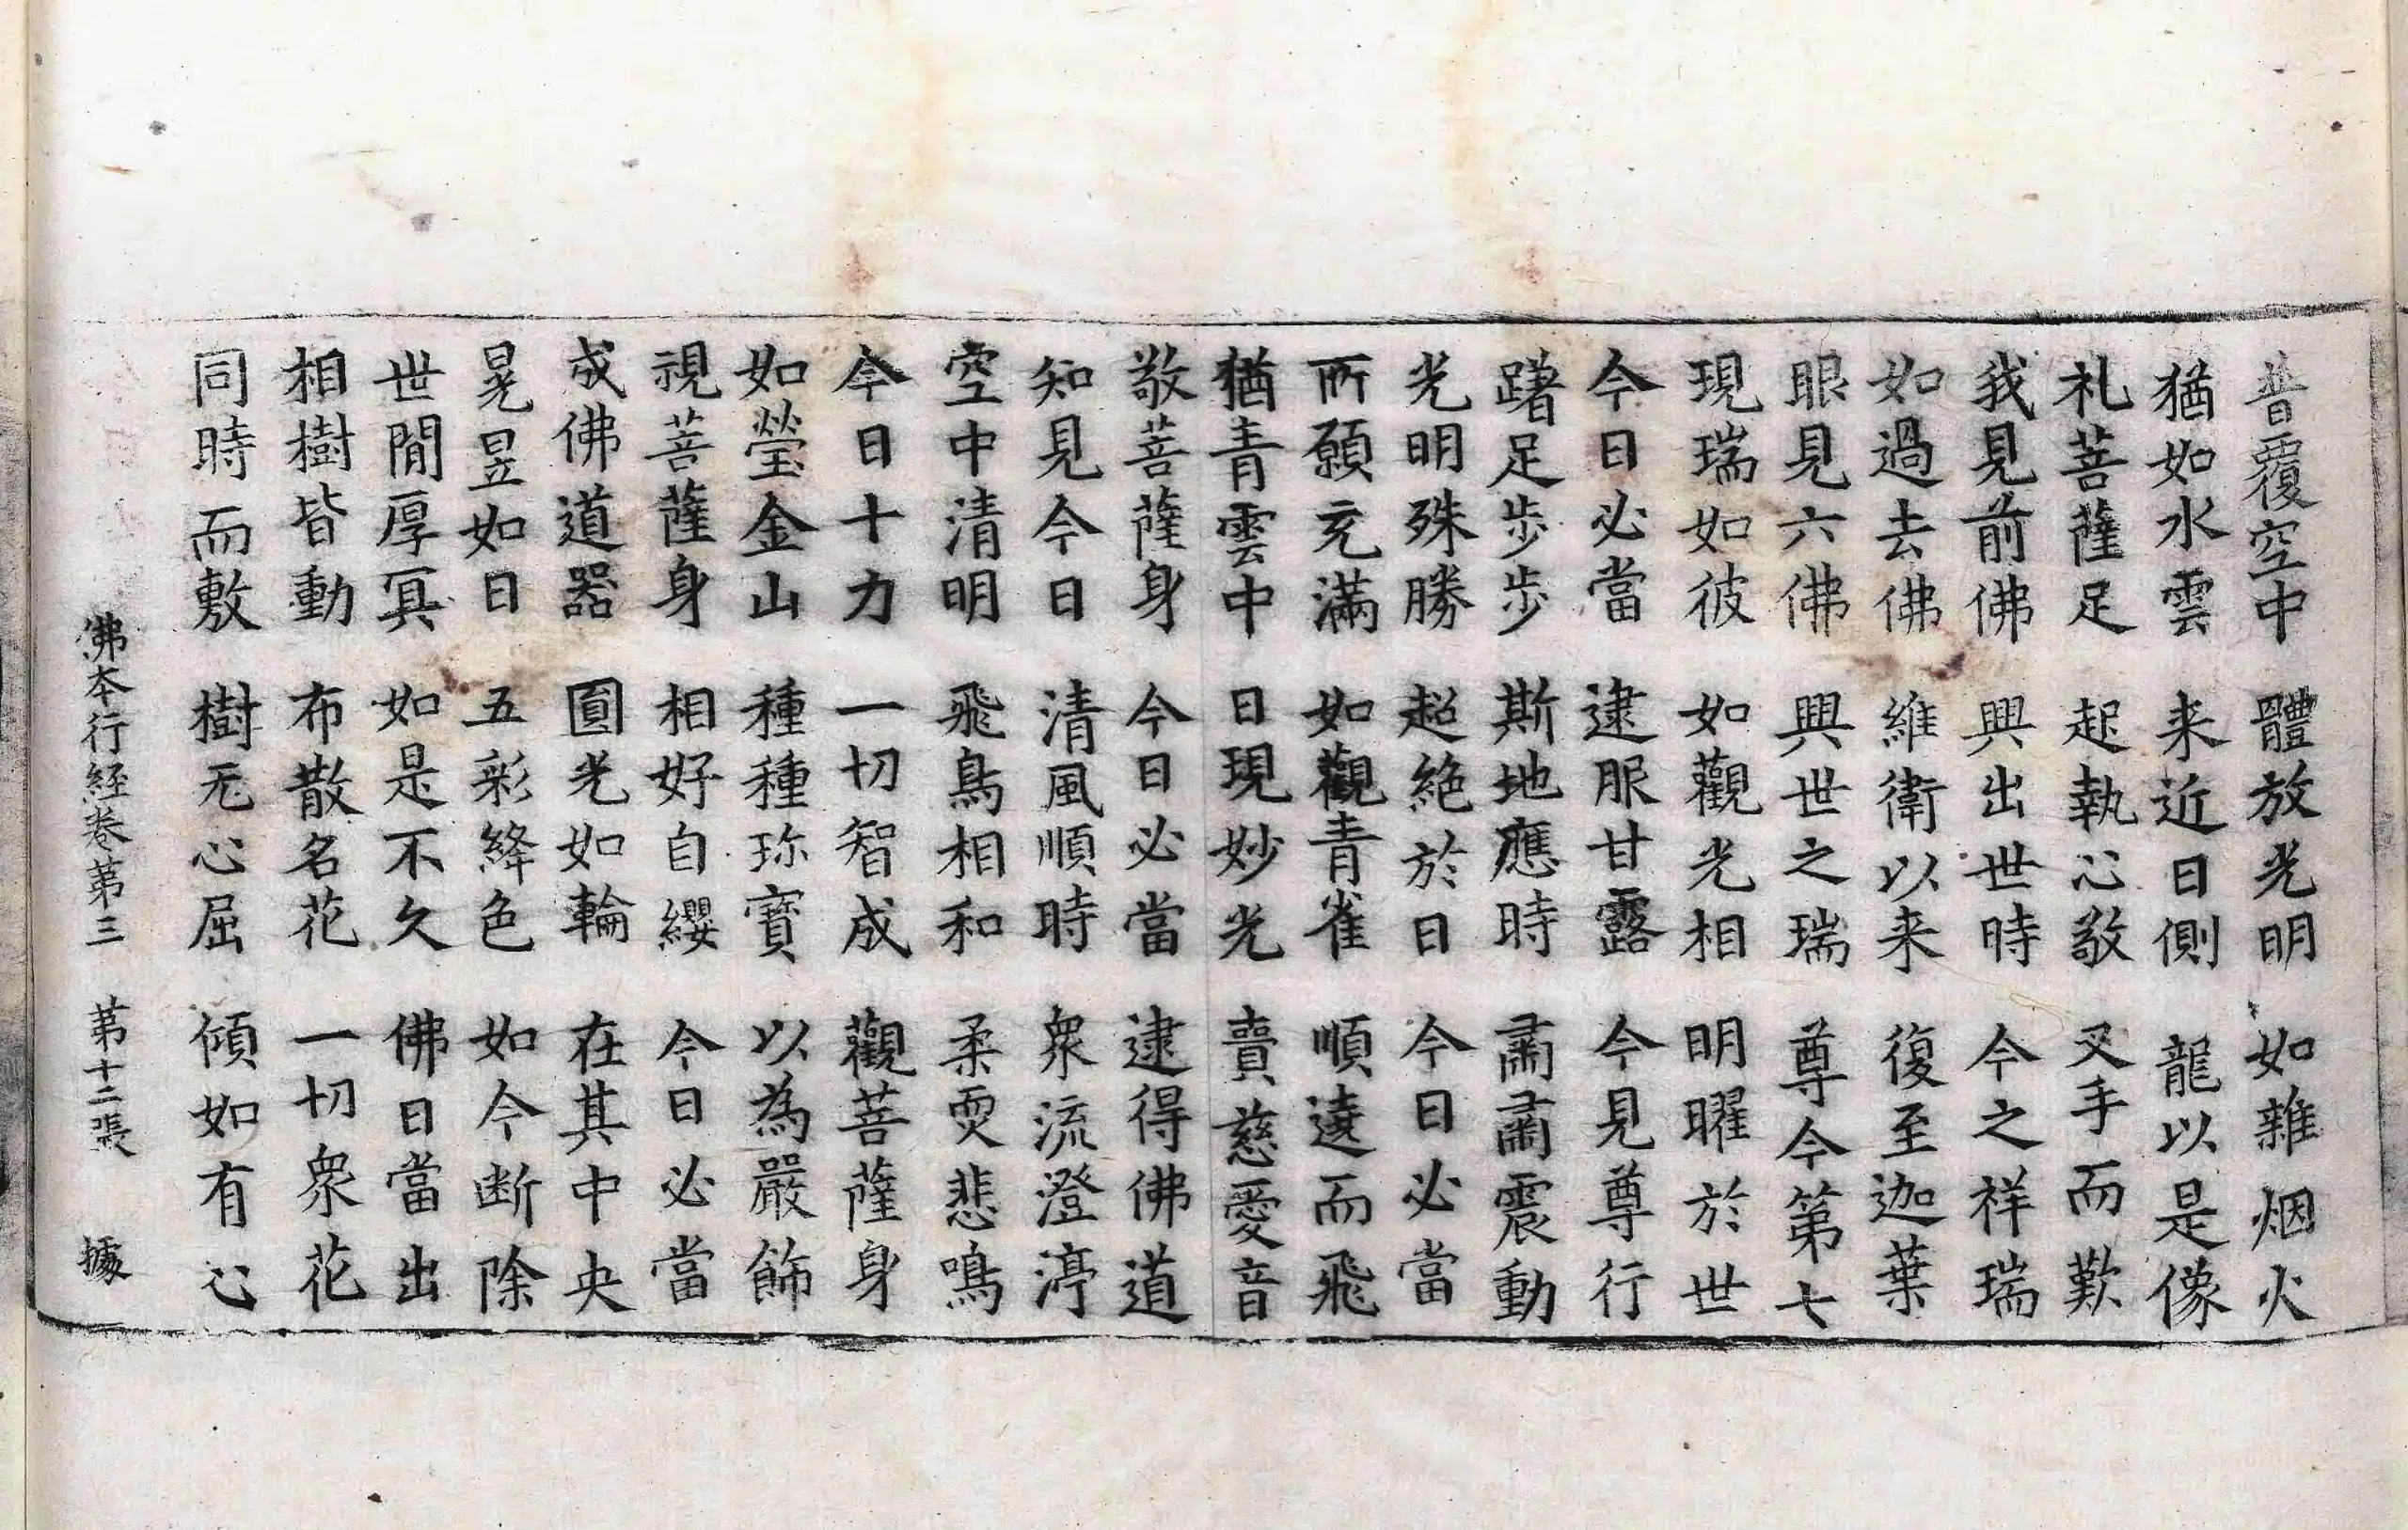 普覆空中 體放光明 如雜烟火
猶如水雲 来近日側 龍以是像
礼菩薩足 起執心敬 叉手而歎
我見前佛 興出世時 今之祥瑞
如過去佛 維衛以来 復至迦葉
眼見六佛 興世之瑞 尊今第七
現瑞如彼 如觀光相 明曜於世
今日必當 逮服甘露 今見尊行
躇足步步 斯地應時 肅肅震動
光明殊勝 超絶於日 今日必當
所願充滿 如觀青雀 順遶而飛
猶青雲中 日現妙光 賣慈愛音
敬菩薩身 今日必當 逮得佛道
知見今日 清風順時 衆流澄渟
空中清明 飛鳥相和 柔耎悲鳴
今日十力 一切智成 觀菩薩身
如瑩金山 種種珎寶 以為嚴飾
視菩薩身 相好自纓 今日必當
成佛道器 圓光如輪 在其中央
晃昱如日 五彩絳色 如今断除
世間厚冥 如是不久 佛日當出
相樹皆動 布散名花 一切衆花
同時而敷 樹无心屈 傾如有心
佛本行経卷第三 第十二張 據